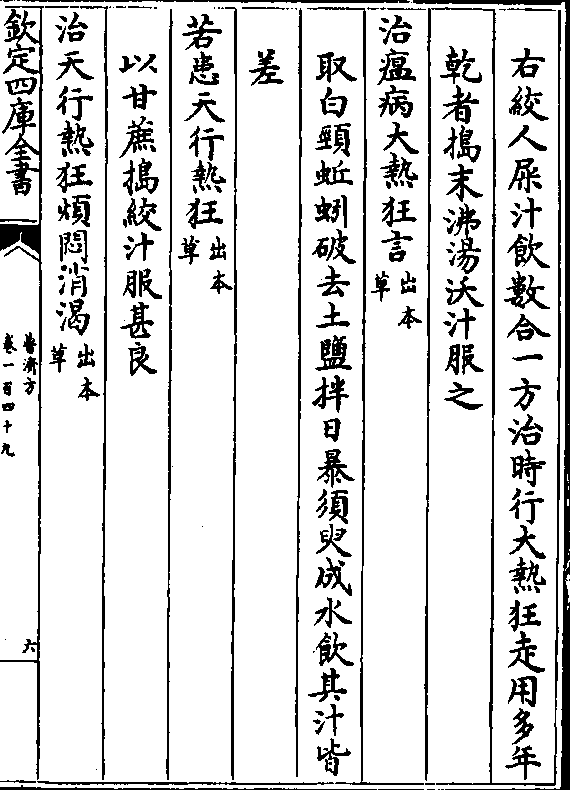 右絞人屎汁飲數合一方治時行大熱狂走用多年
乾者搗末沸湯沃汁服之
治瘟病大熱狂言出本草
取白頸蚯蚓破去土鹽拌日暴須臾成水飲其汁皆
差
若患天行熱狂出本草
以甘蔗搗絞汁服甚良
治天行熱狂煩悶消渴出本草
欽定四庫全書
普濟方
卷一百四十九
六